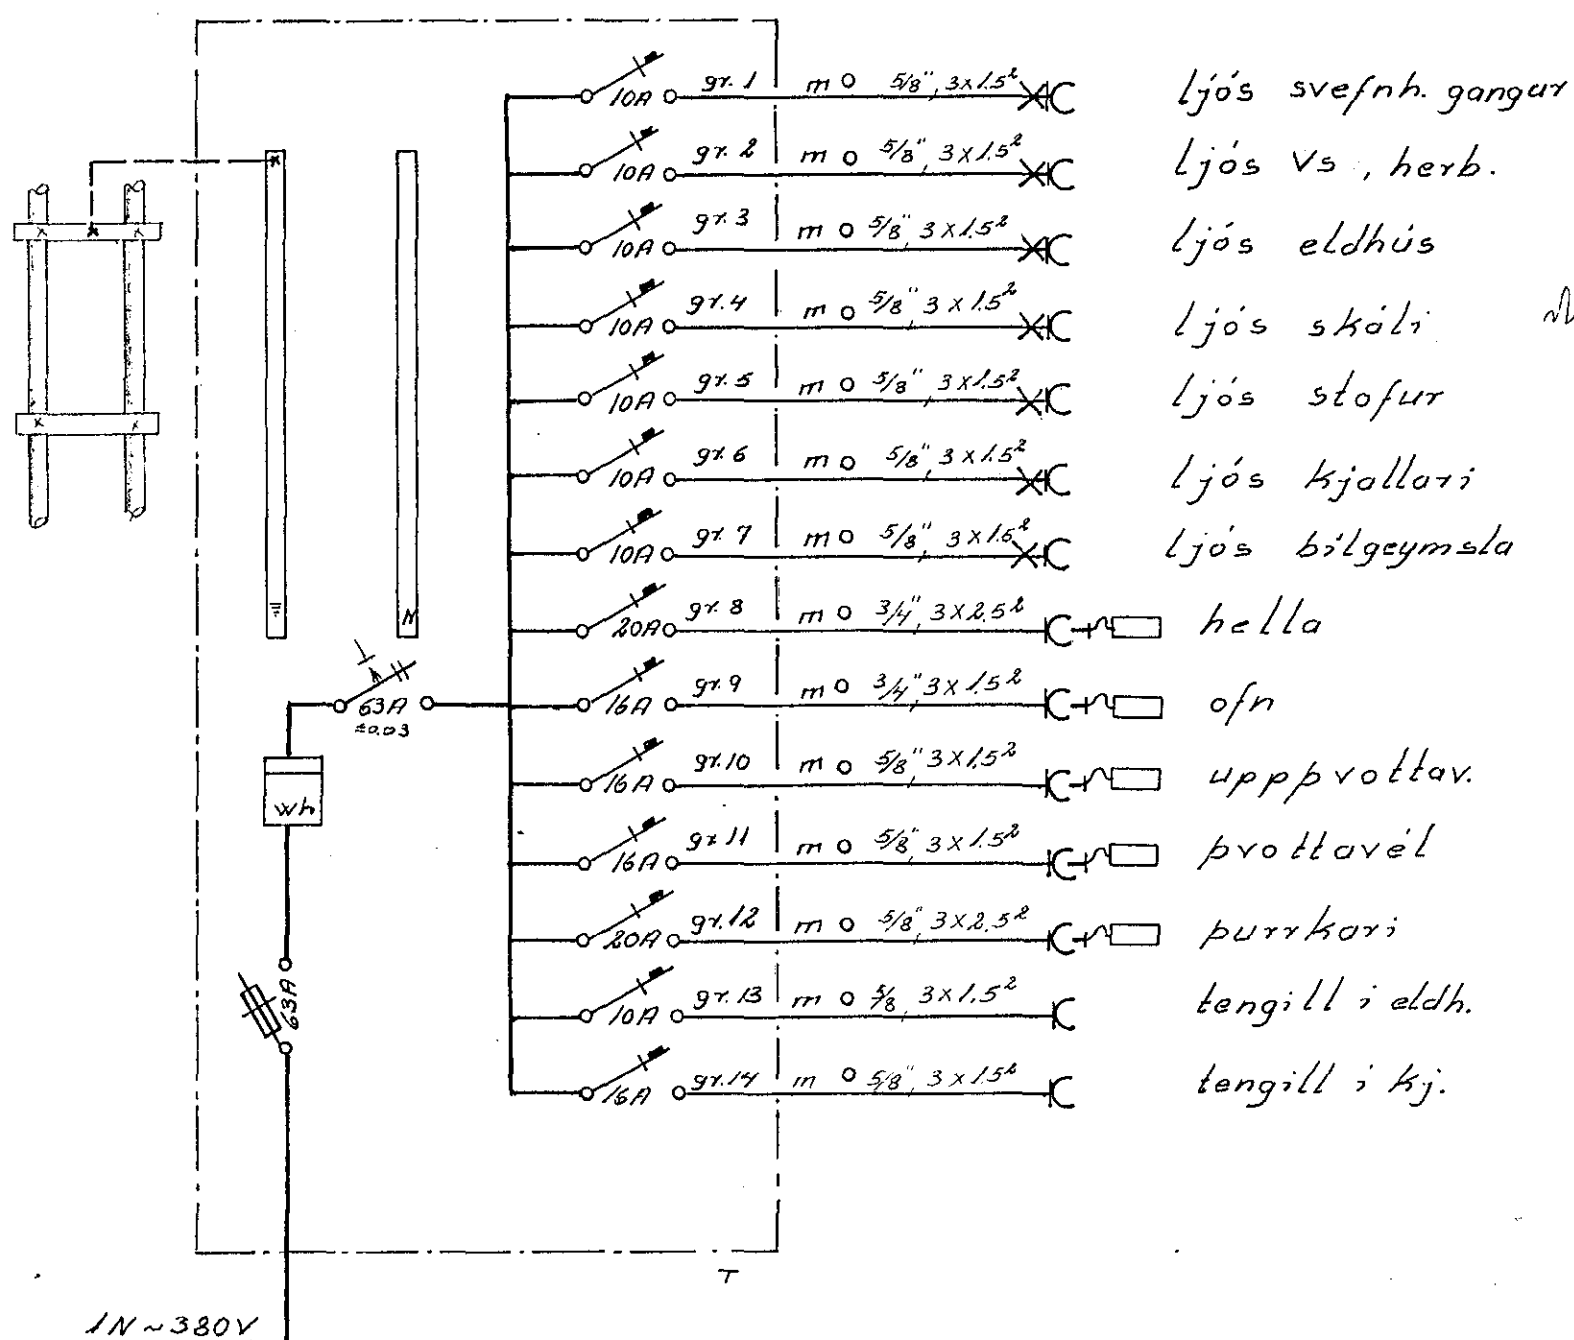 10A gr. 1 m 5/8", 3x1.5² ljós svefnh. gangur
10A gr. 2 m 5/8", 3x1.5² ljós Vs, herb.
10A gr. 3 m 5/8", 3x1.5² ljós eldhús
10A gr. 4 m 5/8", 3x1.5² ljós skáli
10A gr. 5 m 5/8", 3x1.5² ljós stofur
10A gr. 6 m 5/8", 3x1.5² ljós kjallari
10A gr. 7 m 5/8", 3x1.5² ljós bílgeymsla
20A gr. 8 m 3/4", 3x2.5² hella
N
63A
±0.03
16A gr. 9 m 3/4", 3x1.5² ofn
16A gr. 10 m 5/8", 3x1.5² uppþvottav.
Wh
16A gr. 11 m 5/8", 3x1.5² þvottavél
20A gr. 12 m 5/8", 3x2.5² þurrkari
63A
10A gr. 13 m 5/8, 3x1.5² tengill í eldh.
16A gr. 14 m 5/8", 3x1.5² tengill í kj.
T
1N~380V